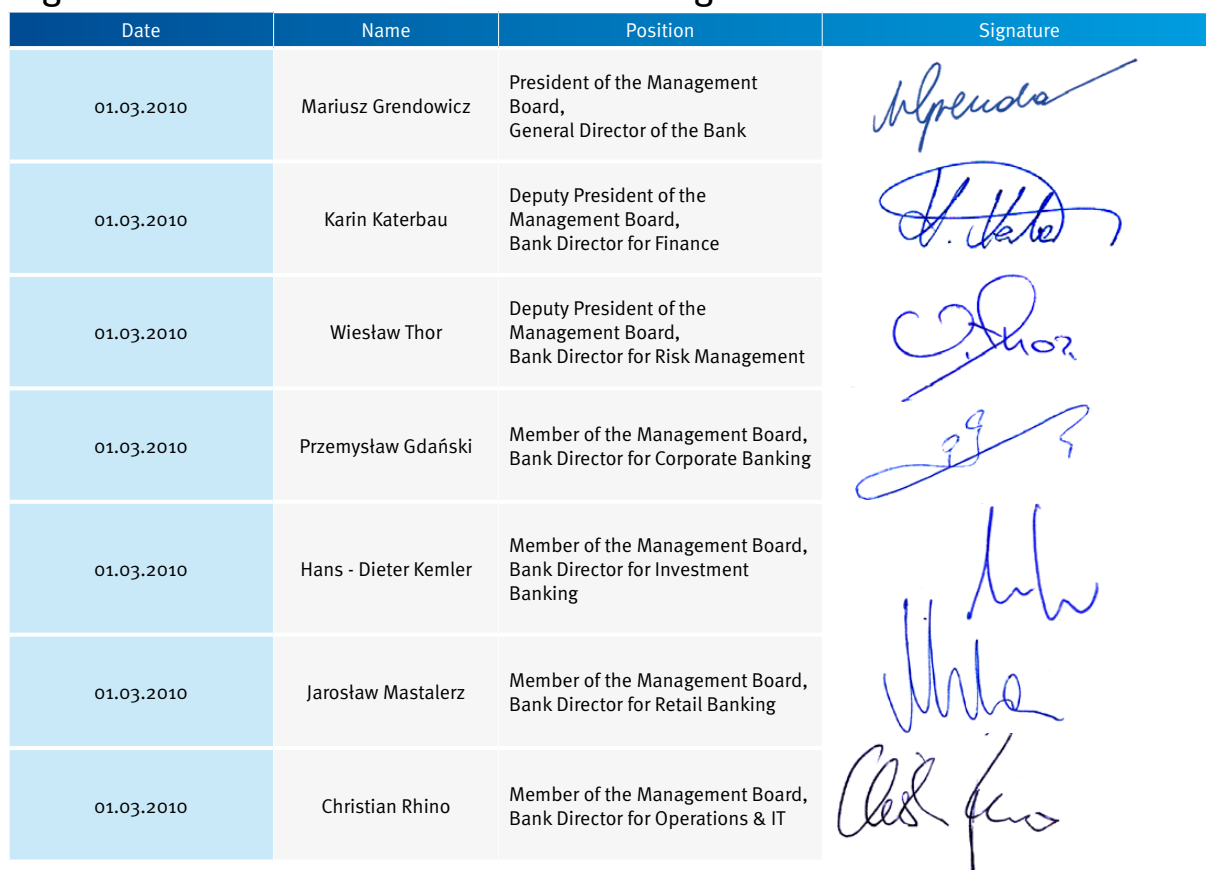 Date Name Position Signature
01.03.2010 Mariusz Grendowicz President of the Management
Board,
General Director of the Bank
01.03.2010 Karin Katerbau Deputy President of the
Management Board,
Bank Director for Finance
01.03.2010 Wiesław Thor Deputy President of the
Management Board,
Bank Director for Risk Management
01.03.2010 Przemysław Gdański Member of the Management Board,
Bank Director for Corporate Banking
01.03.2010 Hans - Dieter Kemler Member of the Management Board,
Bank Director for Investment
Banking
01.03.2010 Jarosław Mastalerz Member of the Management Board,
Bank Director for Retail Banking
01.03.2010 Christian Rhino Member of the Management Board,
Bank Director for Operations & IT